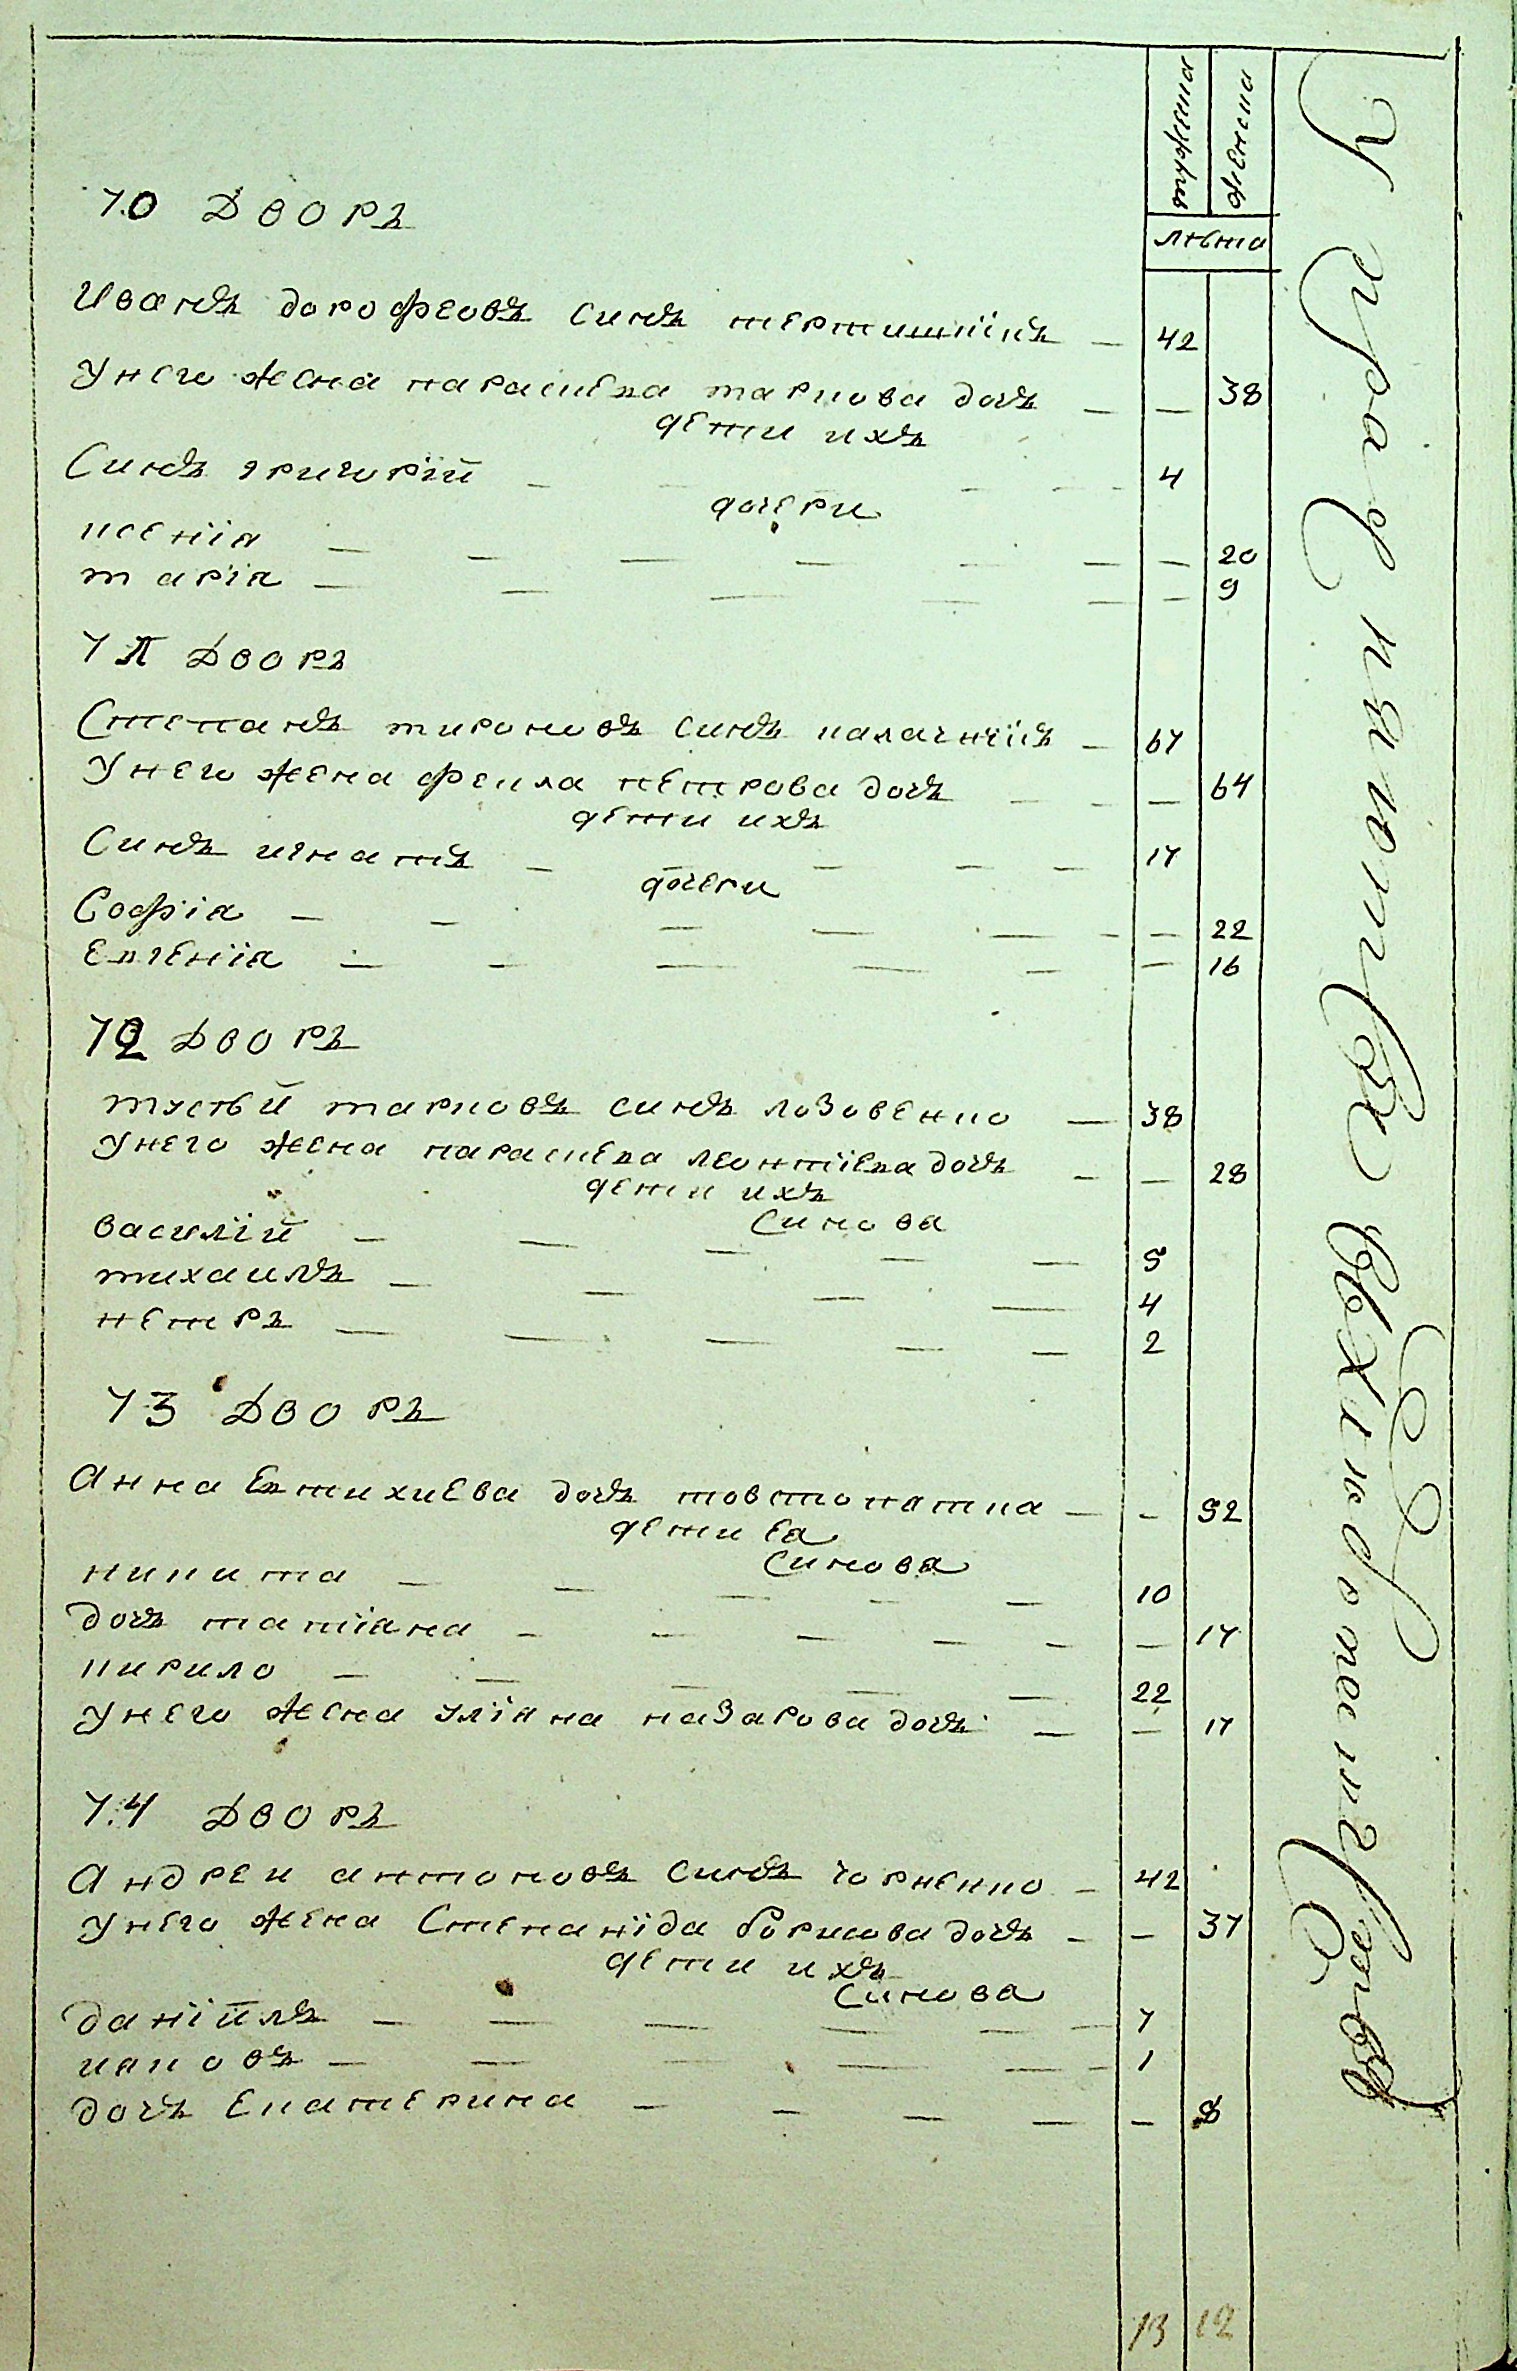 мужеска
женска
лѣта
70 Дворъ
Иванъ дорофеовъ синъ
42
Унего жена параскева маркова дочъ
38
дети ихъ
Синъ григорїй
4
дочери
ксенїя
20
марїя
9
71 Дворъ
Степанъ мироновъ синъ
67
Унего жена фекла петрова дочъ
64
дети ихъ
Синъ игнатъ
17
дочери
Софїя
22
Евгенїя
16
72 Дворъ
мусѣй марковъ синъ лозовенко
38
Унего жена параскева леонтїева дочъ
28
дети ихъ
синова
василїй
5
михаилъ
4
петръ
2
73 Дворъ
Анна Евтихиева дочъ товстопятка
52
дети ея
синова
никита
10
дочъ татїяна
17
кирило
22
Унего жена улїяна назарова дочъ
17
74 Дворъ
Андреи антоновъ синъ чорненко
42
Унего жена Степанїда борисова дочъ
37
дети ихъ
синова
данїйлъ
7
яковъ
1
дочъ Екатерина
8
13 12